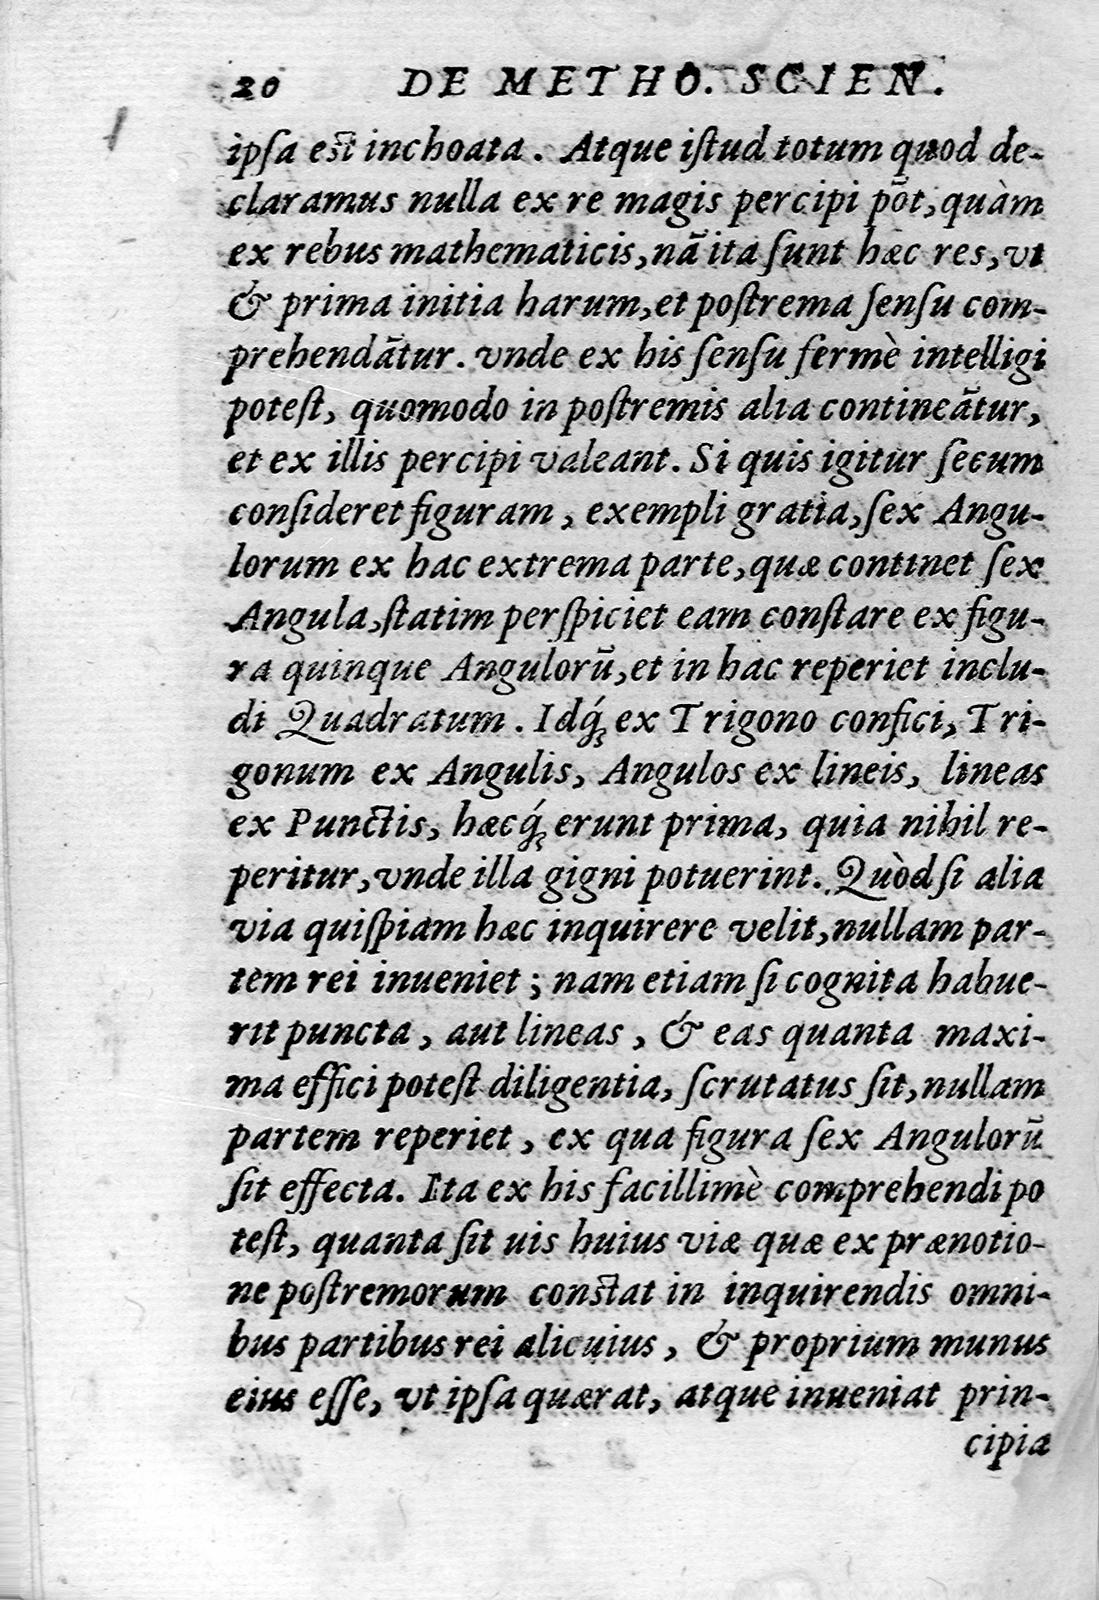 20 DE METHO. SCIEN.
ipſa est̃ inchoata. Atque iſtud totum quod de-
claramus nulla ex re magis percipi põt, quàm
ex rebus mathematicis, nã ita ſunt hæc res, vt
& prima initia harum, et poſtrema ſenſu com-
prehendãtur. vnde ex his ſenſu fermè intelligi
poteſt, quomodo in poſtremis alia contineãtur,
et ex illis percipi valeant. Si quis igitur ſecum
conſideret figuram, exempli gratia, ſex Angu-
lorum ex hac extrema parte, quæ continet ſex
Angula, ſtatim perſpiciet eam conſtare ex figu-
ra quinque Angulorũ, et in hac reperiet inclu-
di Quadratum. Idq́; ex Trigono confici, Tri-
gonum ex Angulis, Angulos ex lineis, lineas
ex Punctis, hæcq́; erunt prima, quia nihil re-
peritur, vnde illa gigni potuerint. Quòd ſi alia
via quiſpiam hæc inquirere velit, nullam par-
tem rei inueniet; nam etiam ſi cognita habue-
rit puncta, aut lineas, & eas quanta maxi-
ma effici poteſt diligentia, ſcrutatus ſit, nullam
partem reperiet, ex qua figura ſex Angulorũ
ſit effecta. Ita ex his facillimè comprehendi po
teſt, quanta ſit uis huius viæ quæ ex prænotio-
ne poſtremorum constat in inquirendis omni-
bus partibus rei alicuius, & proprium munus
eius eſſe, vt ipſa quærat, atque inueniat prin-
cipia